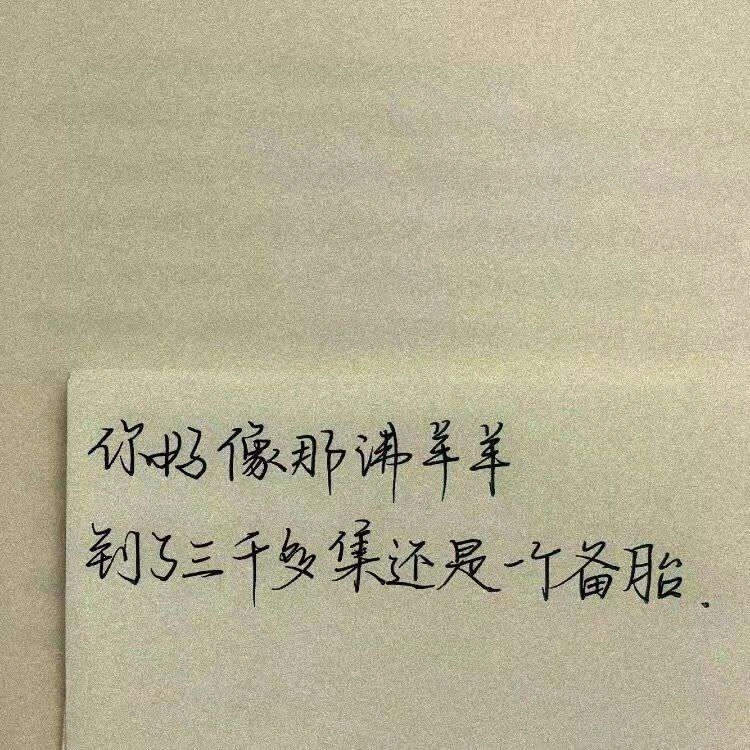 你好像那沸羊羊
到了三千多集还是一个备胎.